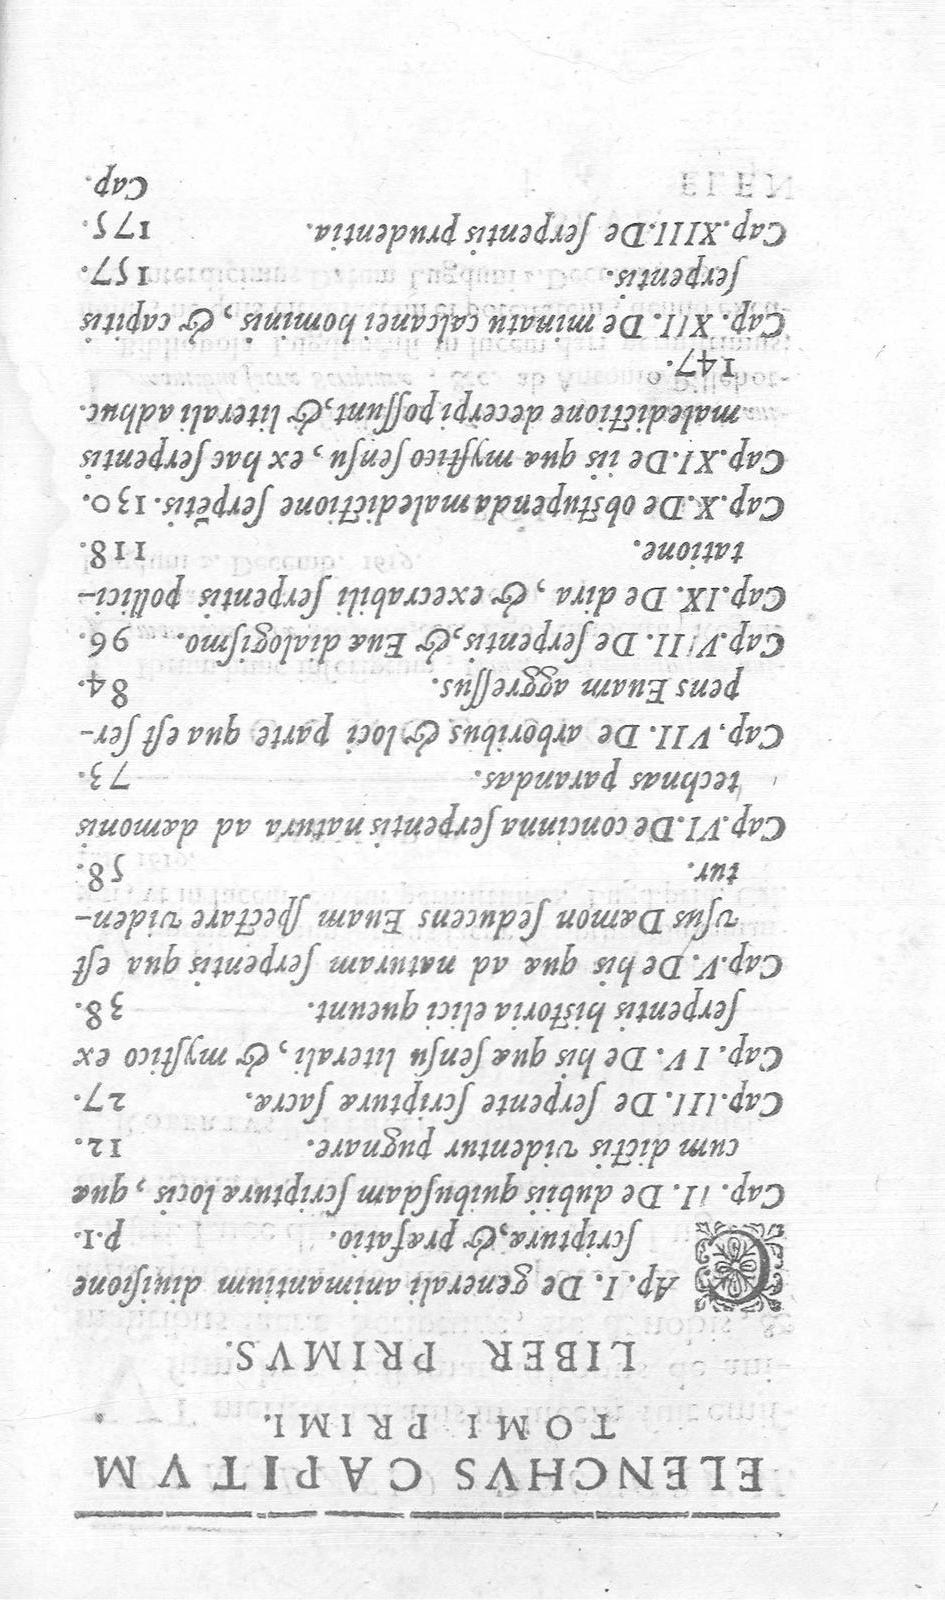 ELENCHVS CAPITVM
TOMI PRIMI.
LIBER PRIMVS.
CAp. I. De generali animantium diuiſione
ſcripturæ, & præfatio. p.1.
Cap. II. De dubiis quibuſdam ſcripturæ locis, quæ
cum dictis videntur pugnare. 12.
Cap. III. De ſerpente ſcripturæ ſacræ. 27.
Cap. IV. De his quæ ſenſu literali, & myſtico ex
ſerpentis hiſtoria elici queunt. 38.
Cap. V. De his quæ ad naturam ſerpentis qua eſt
vſus Dæmon ſeducens Euam ſpectare viden-
tur. 58.
Cap. VI. De concinna ſerpentis natura ad dæmonis
technas parandas. 73.
Cap. VII. De arboribus & loci parte qua eſt ſer-
pens Euam aggreſſus. 84.
Cap. VIII. De ſerpentis, & Euæ dialogiſmo. 96.
Cap. IX. De dira, & execrabili ſerpentis pollici-
tatione. 118.
Cap. X. De obſtupenda maledictione ſerpẽtis. 130.
Cap. XI. De iis quæ myſtico ſenſu, ex hac ſerpentis
maledictione decerpi poſſunt, & literali adhuc.
147.
Cap. XII. De minatu calcanei hominis, & capitis
ſerpentis. 157.
Cap. XIII. De ſerpentis prudentia. 175.
Cap.